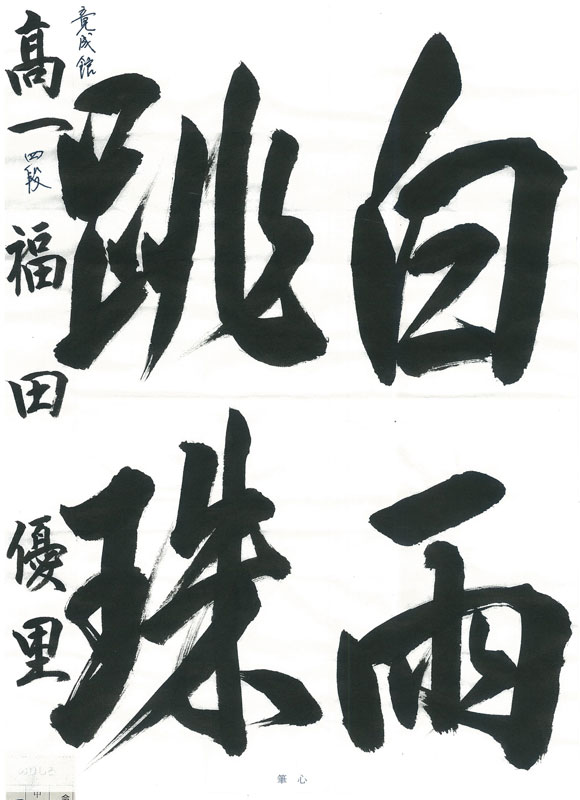 白雨
跳珠
竟成館
高一四段 福田 優里
筆心